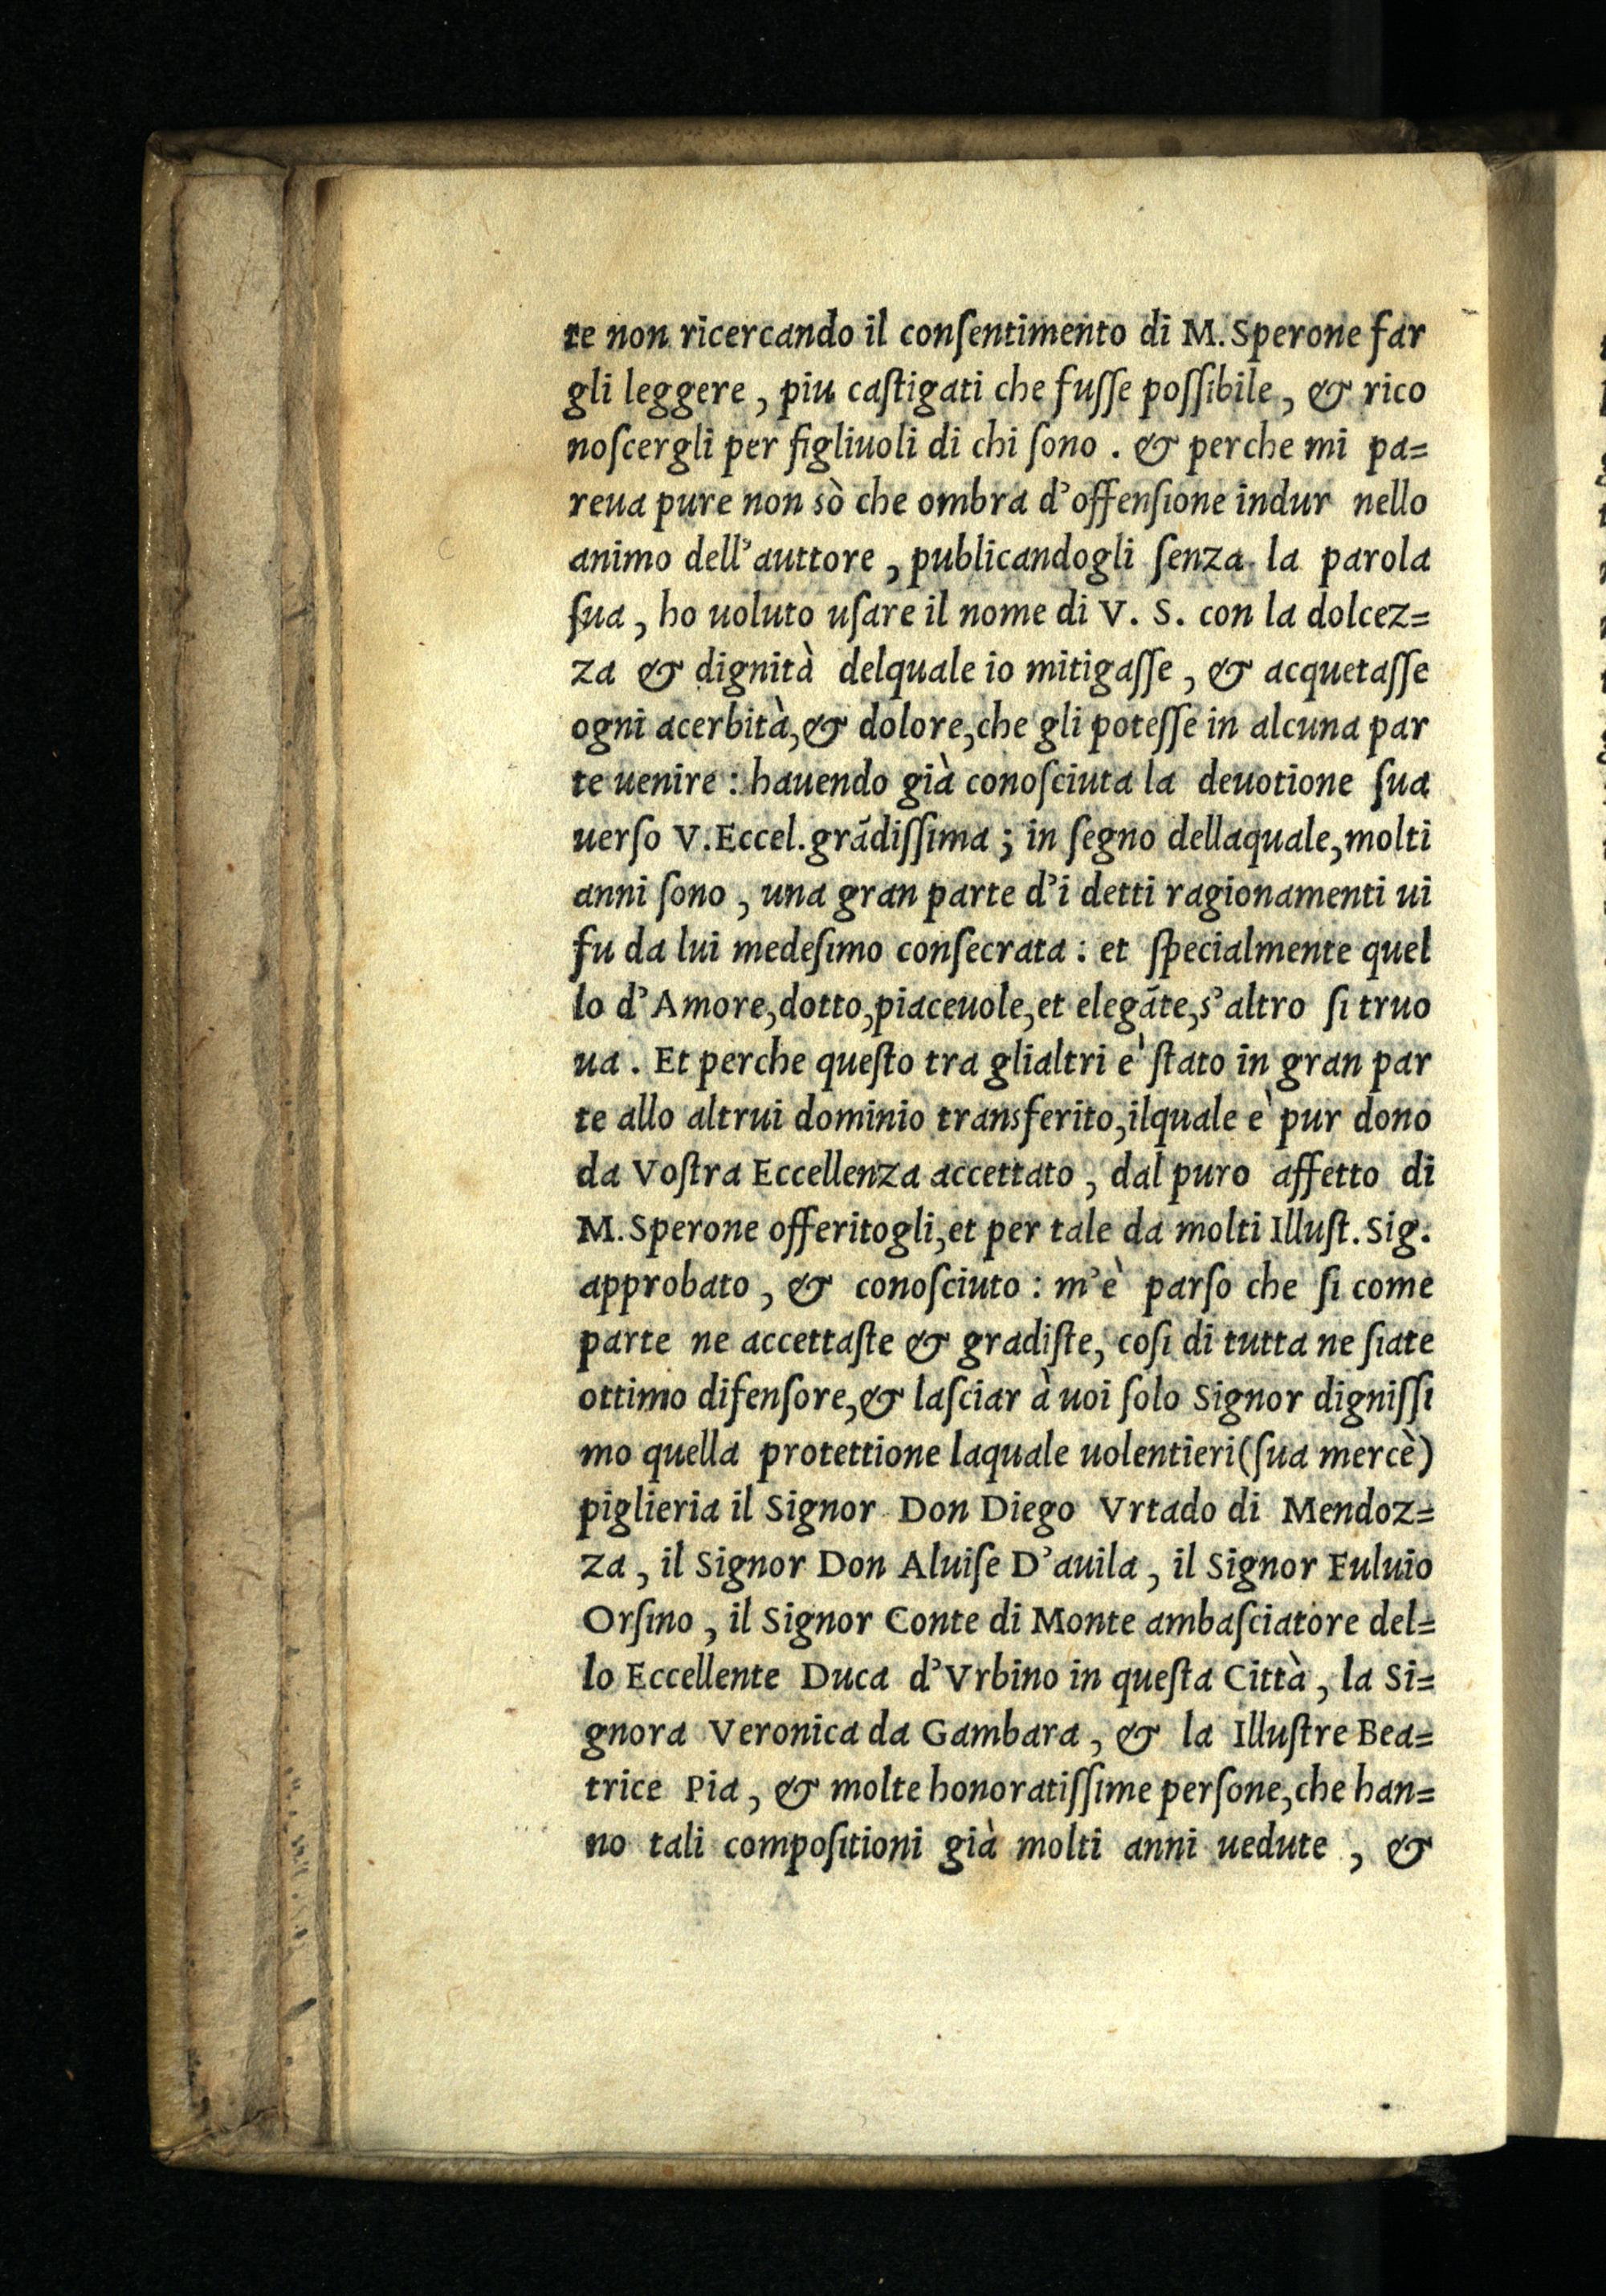 te non ricercando il conſentimento di M. Sperone far
gli leggere, piu caſtigati che fuſſe poſſibile, & rico
noſcergli per figliuoli di chi ſono. & perche mi pa=
reua pure non sò che ombra d'offenſione indur nello
animo dell'auttore, publicandogli ſenza la parola
ſua, ho uoluto uſare il nome di V. S. con la dolcez=
za & dignità delquale io mitigaſſe, & acquetaſſe
ogni acerbità,& dolore,che gli poteſſe in alcuna par
te uenire: hauendo già conoſciuta la deuotione ſua
uerſo V.Eccel.grãdiſſima; in ſegno dellaquale,molti
anni ſono, una gran parte d'i detti ragionamenti ui
fu da lui medeſimo conſecrata: et ſpecialmente quel
lo d'Amore,dotto,piaceuole,et elegãte,s'altro ſi truo
ua. Et perche queſto tra glialtri e' ſtato in gran par
te allo altrui dominio transferito,ilquale e' pur dono
da Voſtra Eccellenza accettato, dal puro affetto di
M.Sperone offeritogli,et per tale da molti Illuſt. Sig.
approbato, & conoſciuto: m'è parſo che ſi come
parte ne accettaſte & gradiſte, coſi di tutta ne ſiate
ottimo difenſore,& laſciar à uoi ſolo Signor digniſſi
mo quella protettione laquale uolentieri(ſua mercè)
piglieria il Signor Don Diego Vrtado di Mendoz=
za, il Signor Don Aluiſe D'auila, il Signor Fuluio
Orſino, il Signor Conte di Monte ambaſciatore del=
lo Eccellente Duca d'Vrbino in queſta Città, la Si=
gnora Veronica da Gambara, & la Illuſtre Bea=
trice Pia, & molte honoratiſſime perſone,che han=
no tali compoſitioni già molti anni uedute, &